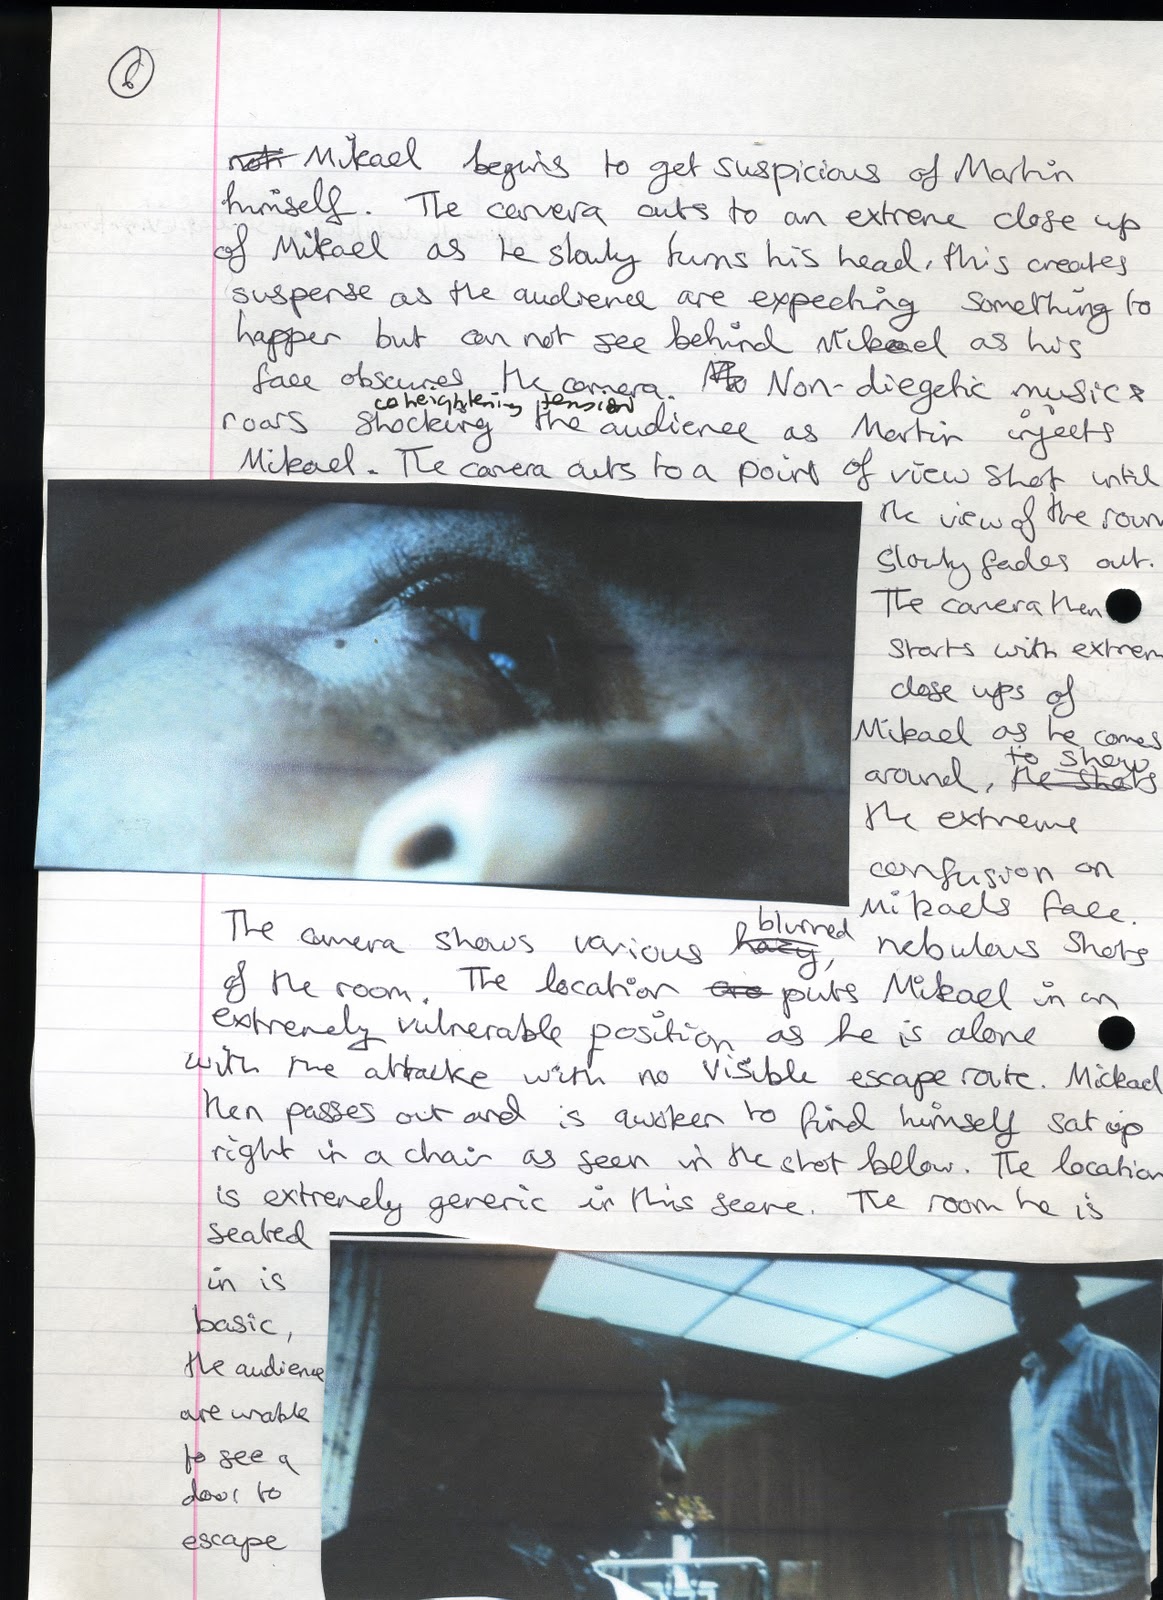 6
not Mikael begins to get suspicious of Martin
himself. The camera cuts to an extreme close up
of Mikael as he slowly turns his head, this creates
suspense as the audience are expecting something to
happen but can not see behind Mikael as his
face obscures the camera. Non-diegetic music
heightening tension
roars shocking the audience as Martin injects
Mikael. The camera cuts to a point of view shot until
the view of the room
slowly fades out.
The camera then
starts with extrem
close ups of
Mikael as he comes
to show
around, the shots
the extreme
confusion on
Mikaels face.
blurred
The camera shows various hazy, nebulous shots
of the room. The location puts Mikael in an
extremely vulnerable position as he is alone
with the attacke with no visible escape route. Mickael
then passes out and is awoken to find himself sat up
right in a chair as seen in the shot bellow. The location
is extremely generic in this scene. The room he is
seated
in is
basic,
the audience
are unable
to see a
door to
escape